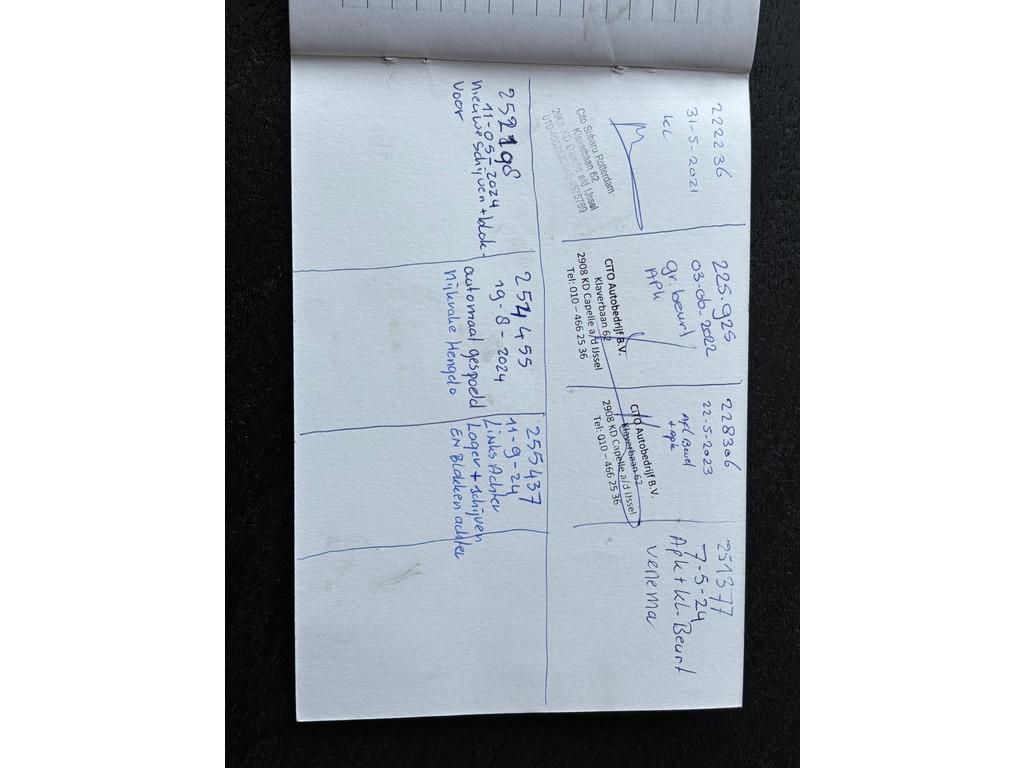 222236
31-5-2021
KL
Cito Subaru Rotterdam
Klaverbaan 62
2908 KD Capelle a/d IJssel
225.925
03.06.2022
gr. beurt
Apk
CITO Autobedrijf B.V.
Klaverbaan 62
2908 KD Capelle a/d IJssel
Tel: 010 – 466 25 36
228306
22-5-2023
+ apk
CITO Autobedrijf B.V.
Klaverbaan 62
2908 KD Capelle a/d IJssel
Tel: 010 – 466 25 36
251377
7-5-24
Apk + KL. Beurt
venema
252198
11-05-2024
nieuwe schijven + blok-
voor
254455
19-8-2024
automaat gespoeld
Nijkrake Hengelo
255437
11-9-24
Links Achter
Lager + schijven
EN Blokken achter